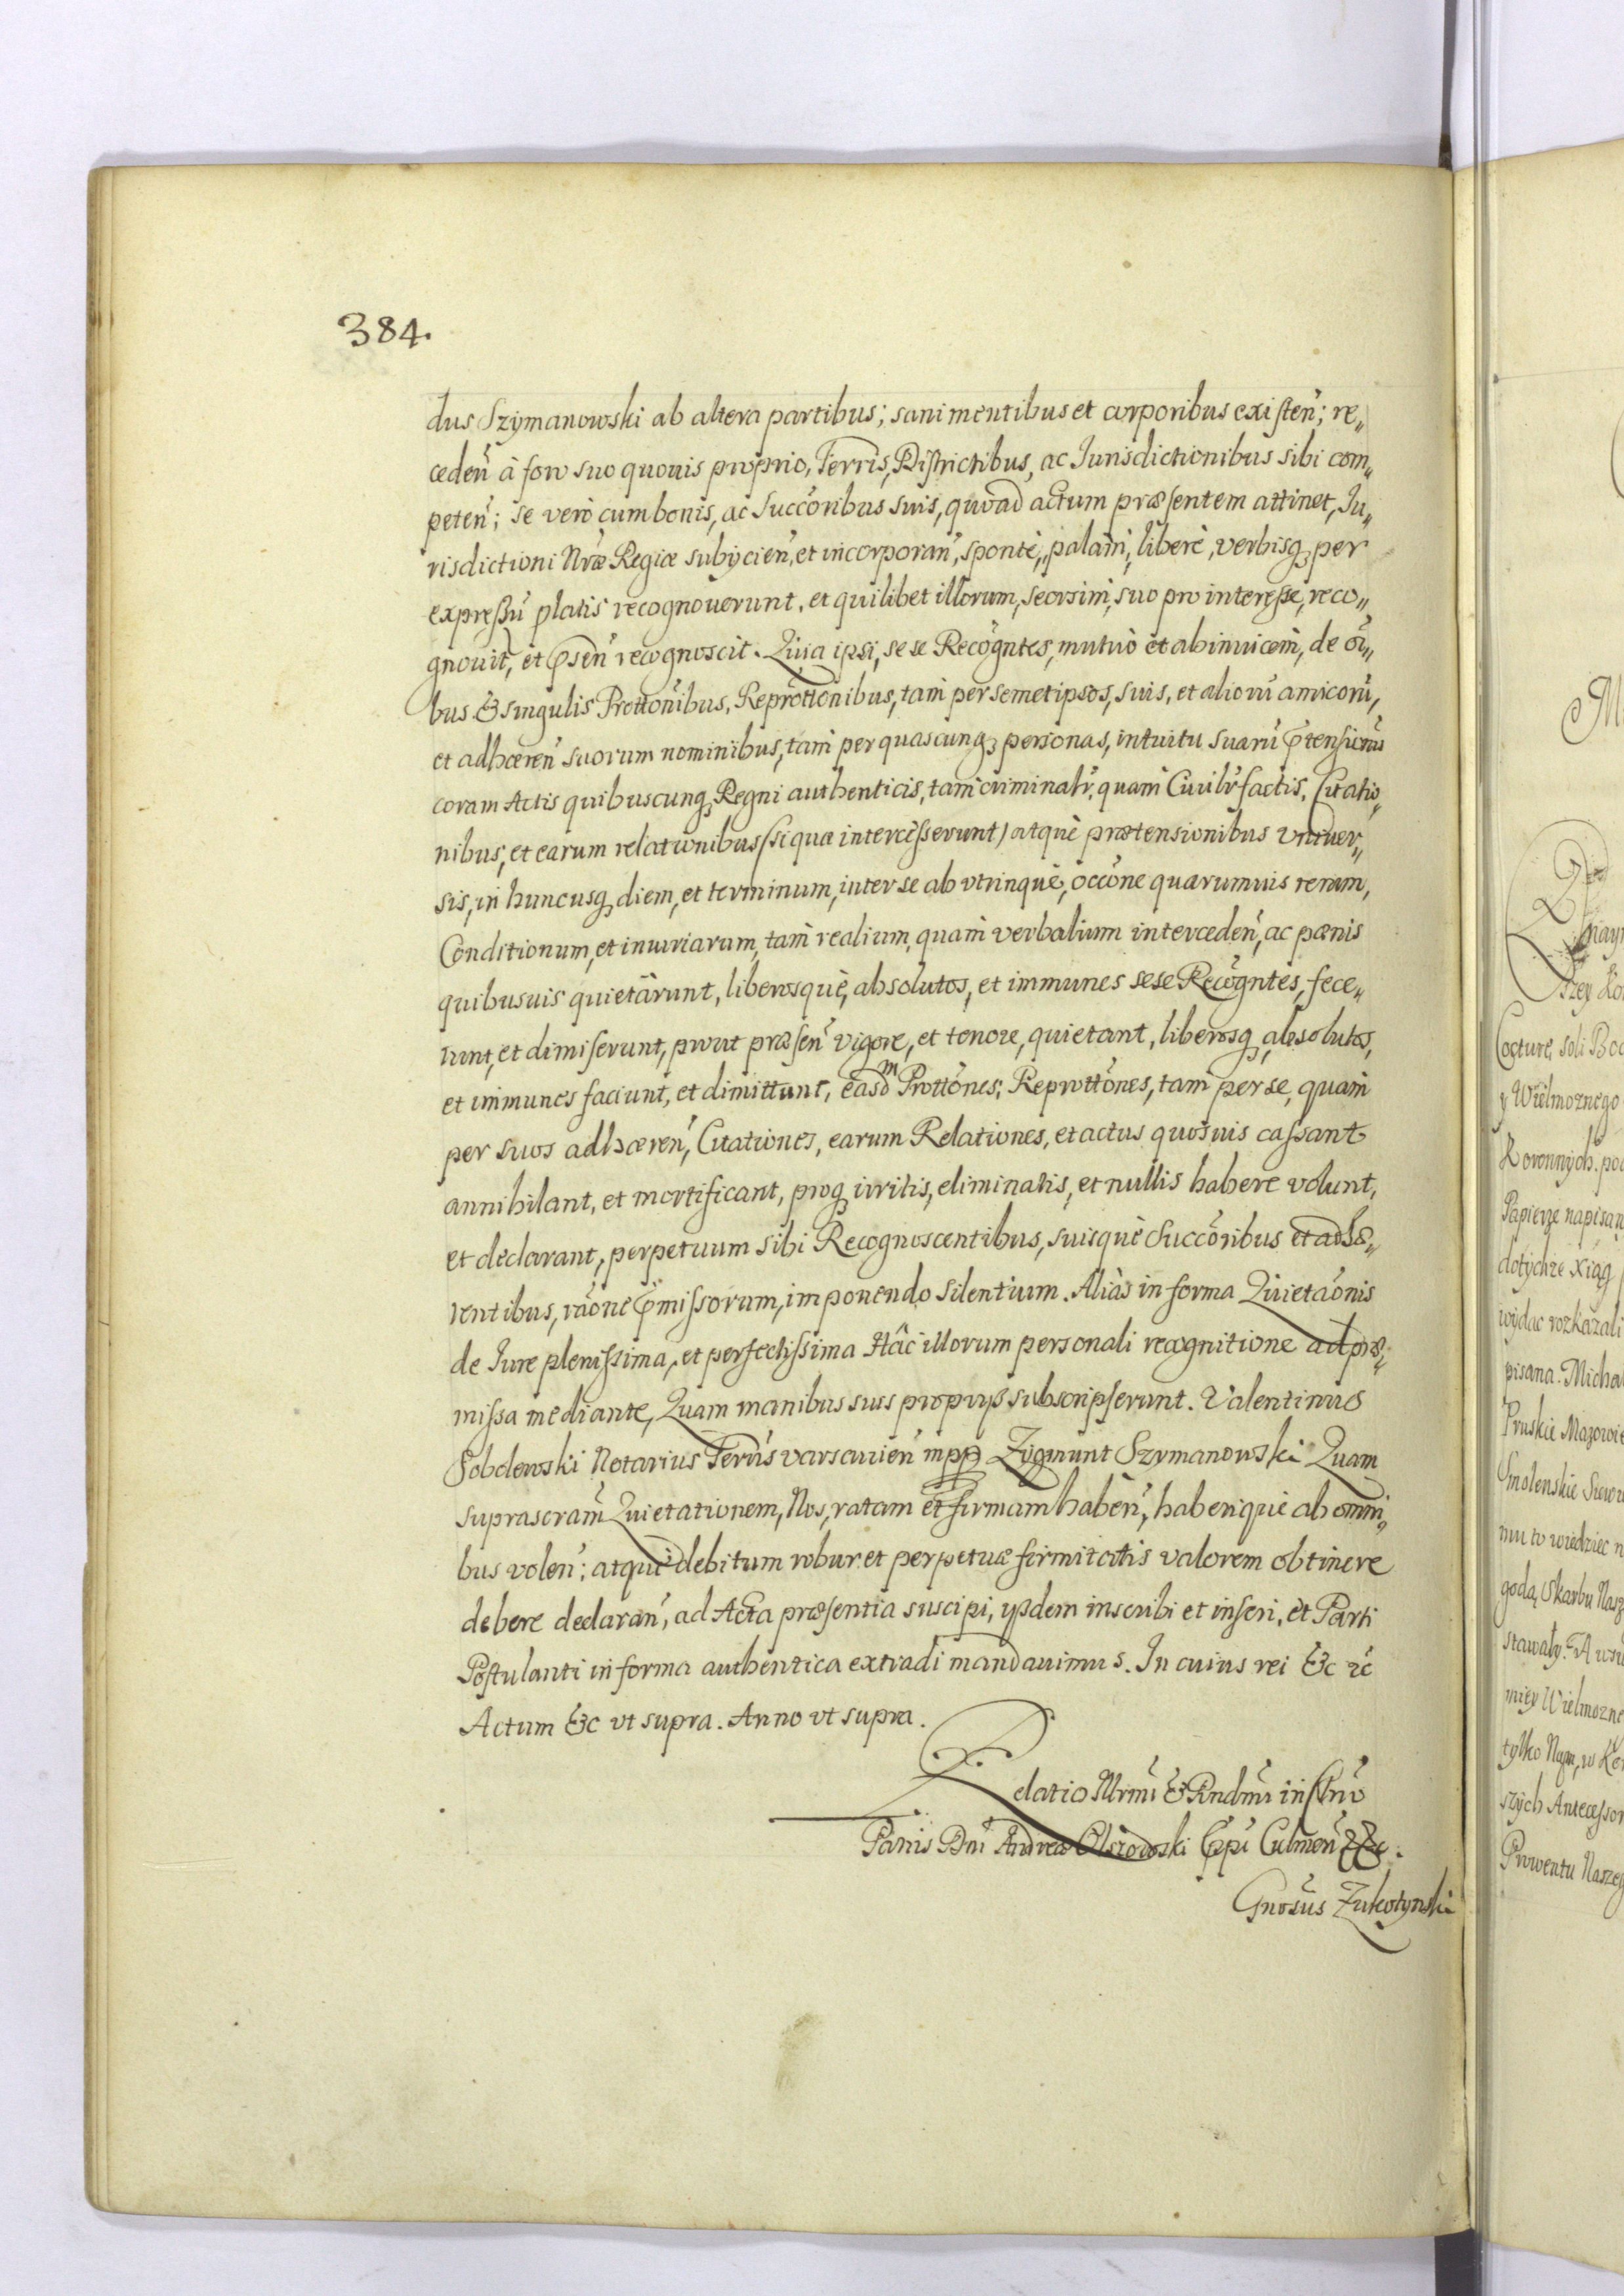 384.
dus Szymanowski ab altera partibus; sani mentibus et corporibus existen̄; re„
ceden̄ à foro suo quouis proprio, Terris, Districtibus, ac Iurisdictionibus sibi com„
peten̄; se verò cum bonis, ac Succōribus suis, quoad actum præsentem attinet, Iu„
risdictioni Nr̄æ Regiæ subijcien̄, et incorporan̄, spontè, palàm, liberè, verbisq₃ per
expressū platis recognoverunt, et quilibet illorum, seorsim, suo pro interesse, reco„
gnouit, et p̄sen̄ recognoscit. Quia ipsi, sese Recōgntes, mutuò et abinuicem, de oī„
bus & singulis Prottōnibus, Reprōttionibus, tam per semetipsos, suis, et aliorū amicorū,
et adhæren̄ suorum nominibus, tam per quascunq₃ personas, intuitu suarū p̄tensionū
coram Actis quibuscunq₃ Regni authenticis, tam criminalr̄, quam Ciuilr̄ factis, Citatio„
nibus, et earum relationibus (si quæ intercesserunt) atquè prætensionibus vniuer„
sis, in huncusq₃ diem, et terminum, inter se ab vtrinquè, occōne quarumuis rerum,
Conditionum, et iniuriarum, tam realium, quam verbalium interceden̄, ac pœnis
quibusuis quietârunt, liberosquè, absolutos, et immunes sese Recōgntes, fece„
runt, et dimiserunt, prout præsen̄ vigore, et tenore, quietant, liberosq₃ absolutos,
et immunes faciunt, et dimittunt, easdm Prottōnes, Reprottōnes, tam per se, quàm
per suos adhæren̄, Citationes, earum Relationes, et actus quosuis cassant
annihilant, et mortificant, proq₃ irritis, eliminatis, et nullis habere volunt,
et declarant, perpetuum sibi Recognoscentibus, suisquè Succōribus et adhæ„
rentibus, rāone p̄missorum, imponendo silentium. Aliàs in forma Quietāonis
de Iure plenissima, et perfectissima Hâc illorum personali recognitione ad præ„
missa mediante, Quam manibus suis proprijs subscripserunt. Valentinus
Sobolewski Notarius Terrīs varsauien̄ mpp Zygmunt Szymanowski Quam
suprascram̄ Quietationem, Nos, ratam et firmam haben̄, haberiquè ab omni„
bus volen̄; atquè debitum robur et perpetuæ firmitatis valorem obtinere
debere declaran̄, ad Acta præsentia suscipi, ijsdem inscribi et inseri, et Parti
Postulanti in forma authentica extradi mandauimus. In cuius rei &c &c
Actum &c vt supra. Anno vt supra.
Relatio Illrmi & Rndmi in Chrō
Patris Dni Andreæ Olszowski Eppi Culmen̄ &c.
Gnosus Zukotynski